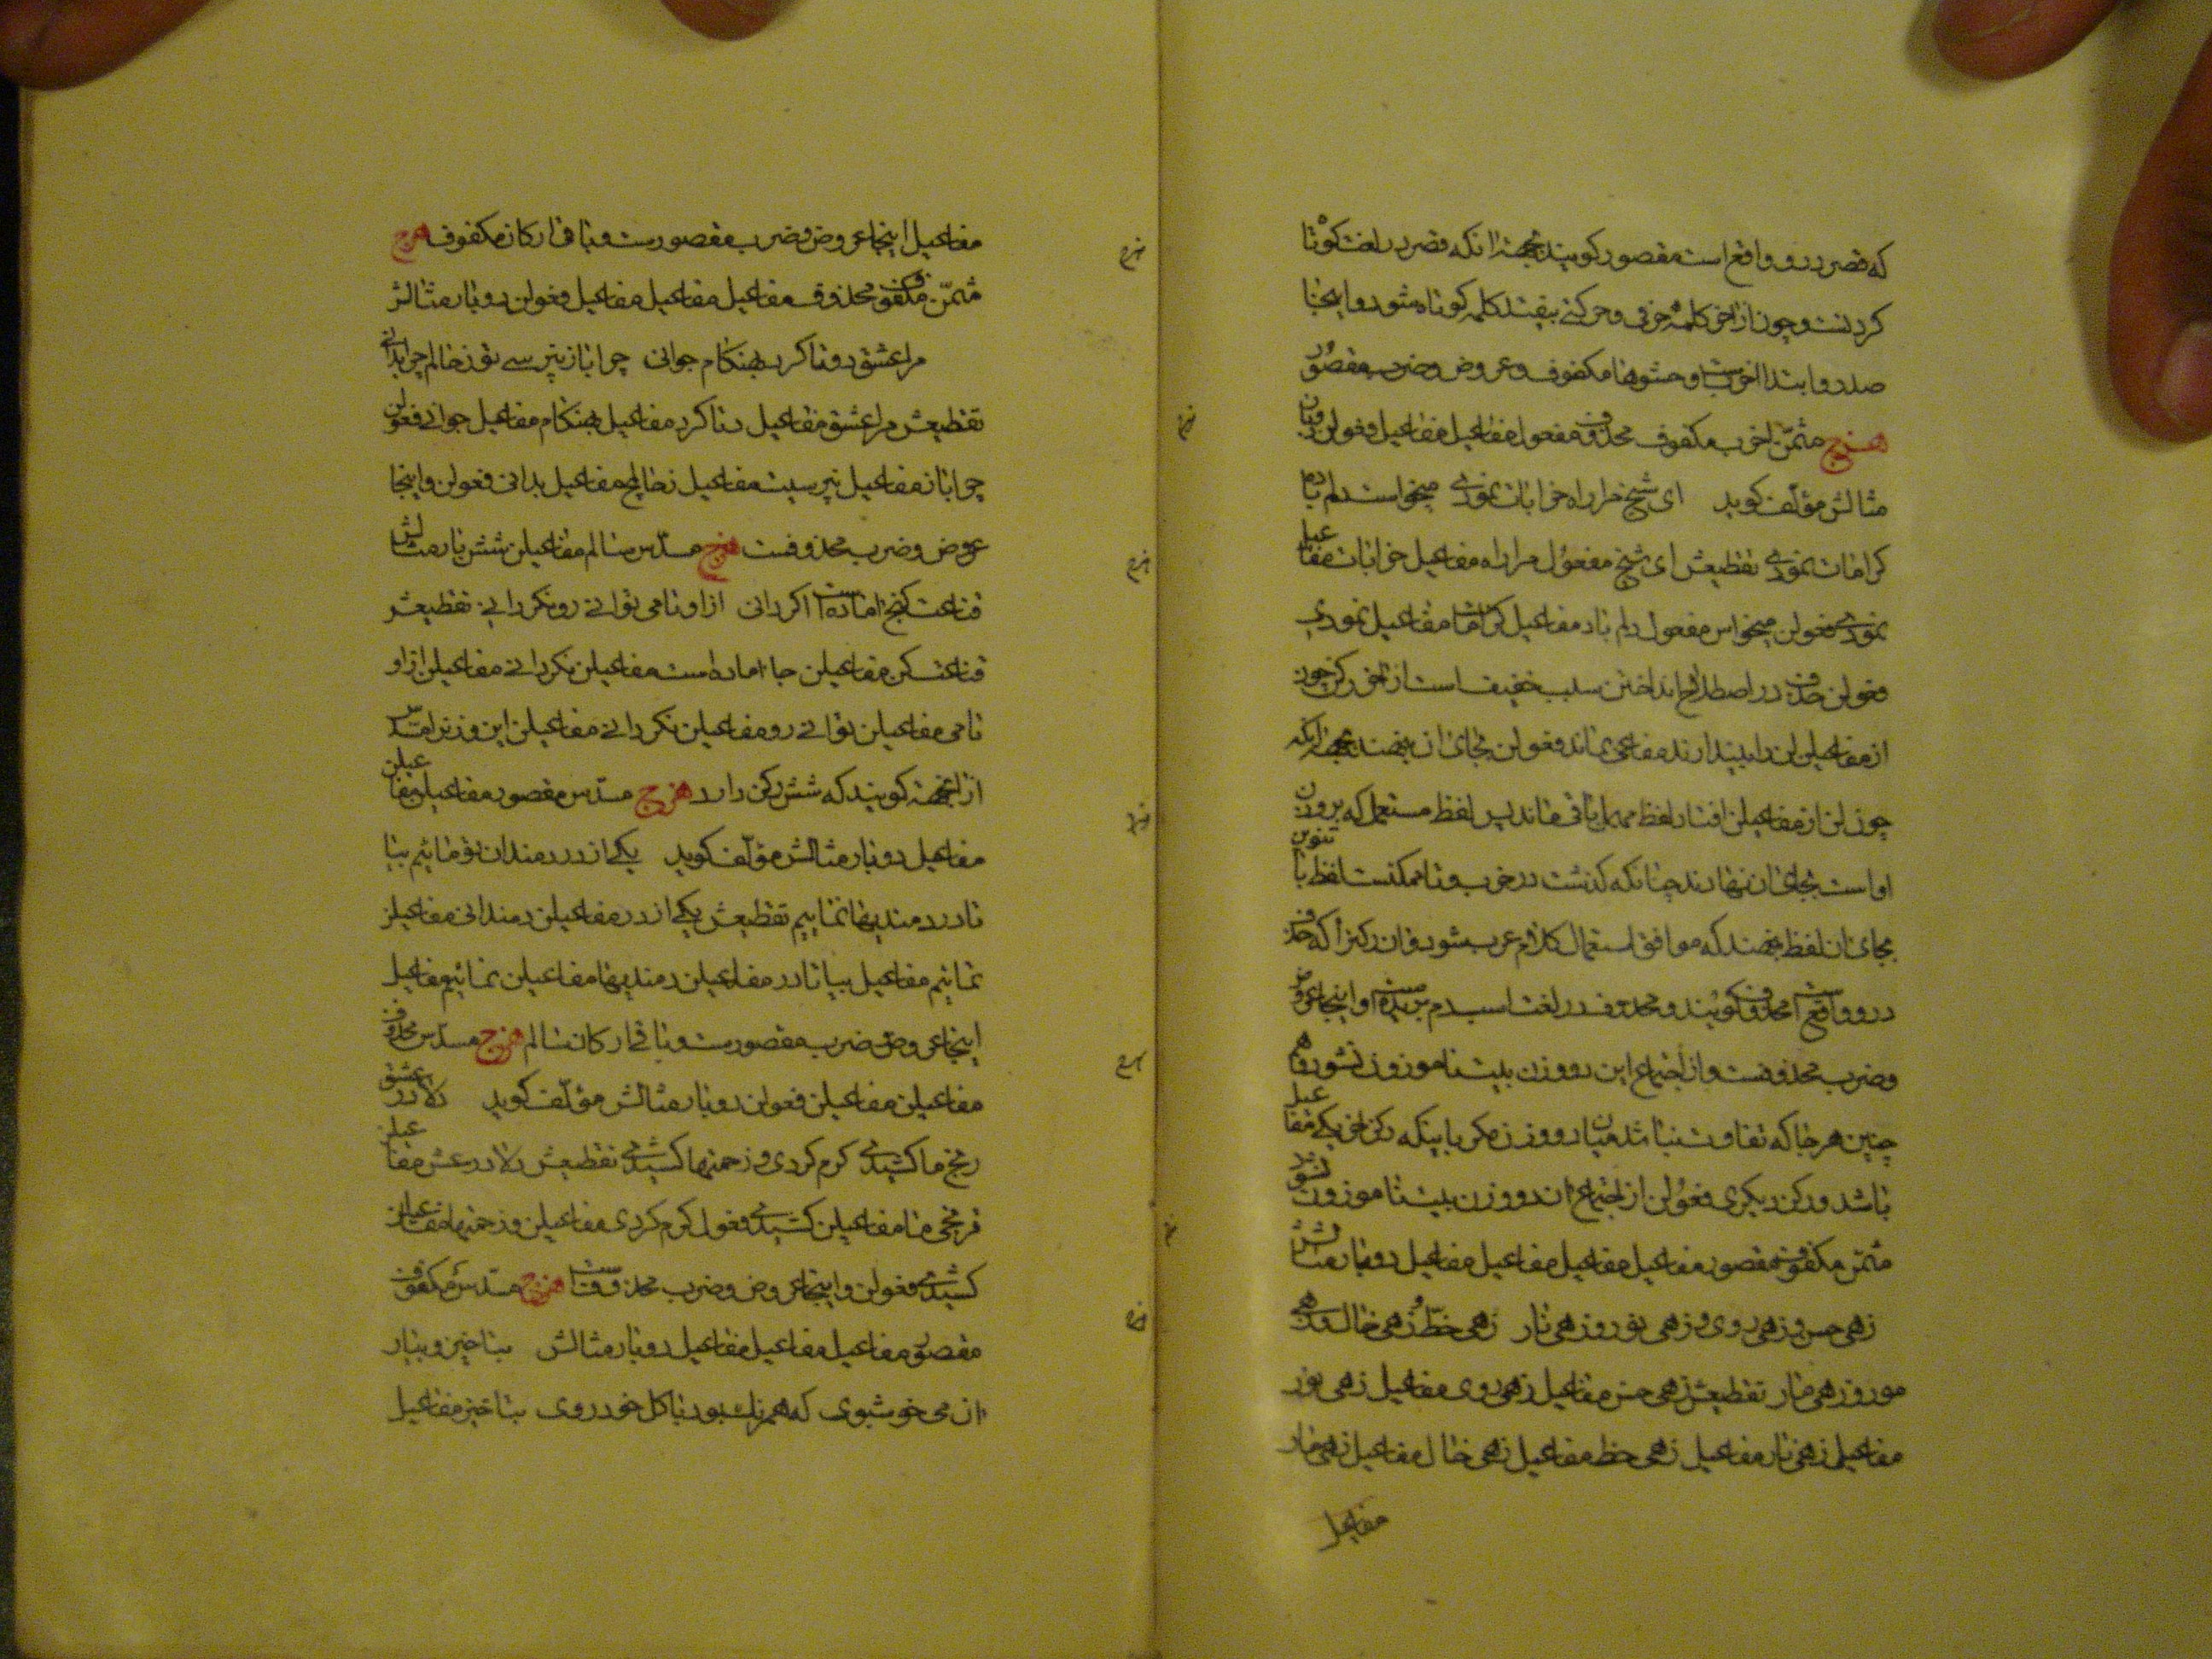 که قصر درو واقع است مقصور کویند بجهة انکه قصر در لغت کوتا
کردنست و چون از اخر کلمه حرفی و حرکتی بیفتد کلمه کوتاه شود و اینجا
صدر و ابتدا اخربست و حشوها مکفوف و عروض و ضرب مقصور
هزج مثمن اخرب مکفوف محذوف مفعول مفاعیل مفاعیل فعولن دوبار
مثالش مؤلف کوید ای شیخ مرا راه خرابات نمودی میخواست دلم باده
کرامات نمودی تقطیعش ای شیخ مفعول مرا راه مفاعیل خرابات مفاعیل
نمودی فعولن میخواس مفعول دلم باد مفاعیل کرامات مفاعیل نمودی
فعولن حذف در اصطلاح انداختن سبب خفیف است از اخر رکن چون
از مفاعیلن لن را بیندازند مفاعی بماند فعولن بجای ان بنهند بجهة انکه
چون لن از مفاعیلن افتاد لفظ مهمل باقی ماند پس لفظ مستعمل که بر وزن
او است بجای ان نهادند چنانکه کذشت در خرب و تا ممکنست لفظ با تنوین
بجای ان لفظ بنهند که موافق استعمال کلام عرب شود و ان رکنرا که حذف
درو واقع است محذوف کویند و محذوف در لغت اسب دم بریده است و اینجا عروض
و ضرب محذوفست و از اجتماع این دو وزن بیت ناموزون نشود و هم
چنین هر جا که تفاوت نباشد میان دو وزن مکر باینکه رکن اخر یکی مفاعیل
باشد و رکن دیکری فعولن از اجتماع ان دو وزن بیت ناموزون نشود
مثمن مکفوف مقصور مفاعیل مفاعیل مفاعیل مفاعیل دوبار مثالش
زهی حسن و زهی روی و زهی نور و زهی نار زهی خط و زهی خال و زهی
مور و زهی مار تقطیعش زهی حسن مفاعیل زهی روی مفاعیل زهی نور
مفاعیل زهی نار مفاعیل زهی خط مفاعیل زهی خال مفاعیل زهی مار
مفاعیل
مفاعیل اینجا عروض و ضرب مقصورست و باقی ارکان مکفوف هزج
مثمن مکفوف محذوف مفاعیل مفاعیل مفاعیل فعولن دوبار مثالش
مرا عشق دوتا کرد بهنکام جوانی چرا باز نپرسی تو ز حالم چو بدانی
تقطیعش مرا عشق مفاعیل دتا کرد مفاعیل بهنکام مفاعیل جوانی فعولن
چرا باز مفاعیل نپرسیت مفاعیل ز حالم چ مفاعیل بدانی فعولن و اینجا
عروض و ضرب محذوفست هزج مسدس سالم مفاعیلن شش بار مثالش
قناعت کنج امادست اکر دانی از او تا می توانی رو نکردانی تقطیعش
قناعت کن مفاعیلن جا اماده است مفاعیلن نکردانی مفاعیلن از او
تا می مفاعیلن توانی رو مفاعیلن نکردانی مفاعیلن این وزنرا مسدس
از انجهة کویند که شش رکن دارد هزج مسدس مقصور مفاعیلن مفاعیلن
مفاعیل دوبار مثالش مؤلف کوید یکی از دردمندان تو مائیم بیا
تا دردمندیها نمائیم تقطیعش یکی از در مفاعیلن دمندانی مفاعیلن
تمائیم مفاعیل بیا تا در مفاعیلن دمندیها مفاعیلن نمائیم مفاعیل
اینجا عروض و ضرب مقصورست و باقی ارکان سالم هزج مسدس محذوف
مفاعیلن مفاعیلن فعولن دوبار مثالش مؤلف کوید دلا در عشق
رنج ما کشیدی کرم کردی و زحمتها کشیدی تقطیعش دلا در عش مفاعیلن
ق رنجی ما مفاعیلن کشیدی فعول کرم کردی مفاعیلن و زحمتها مفاعیلن
کشیدی فعولن و اینجا عروض و ضرب محذوفست هزج مسدس مکفوف
مقصور مفاعیل مفاعیل مفاعیل دوبار مثالش بتا خیز و بیار
ان می خوشبوی که همرنک بود با کل خودروی بتا خیز مفاعیل